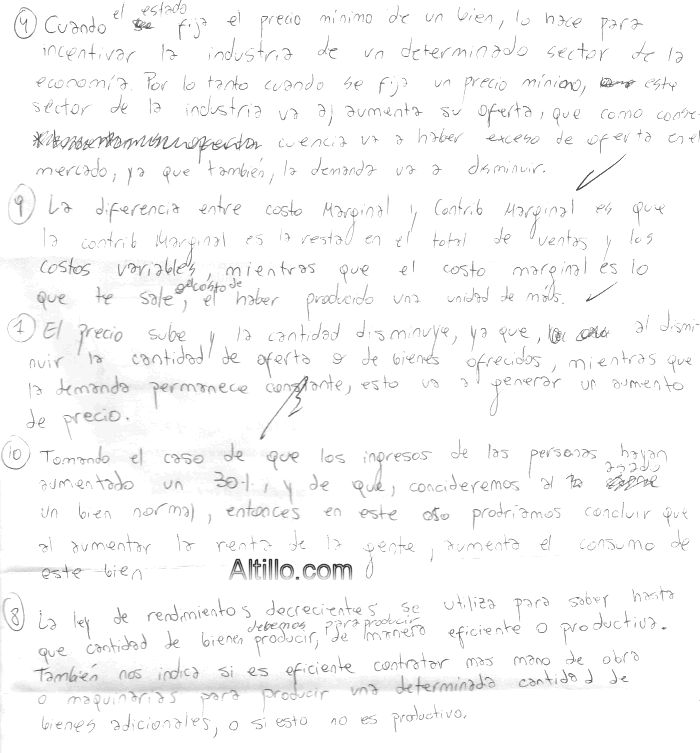 el estado
4) Cuando fija el precio mínimo de un bien, lo hace para
incentivar la industria de un determinado sector de la
economía. Por lo tanto cuando se fija un precio mínimo, este
sector de la industria va a aumenta su oferta, que como conse-
cuencia va a haber exceso de oferta en el
mercado, ya que también, la demanda va a disminuir.
9) La diferencia entre costo Marginal y Contrib Marginal es que
la contrib Marginal es la resta en el total de ventas y los
costos variables, mientras que el costo marginal es lo
que te sale, el costo de haber producido una unidad de más.
1) El precio sube y la cantidad disminuye, ya que, al dismi
nuir la cantidad de oferta o de bienes ofrecidos, mientras que
la demanda permanece constante, esto va a generar un aumento
de precio.
10) Tomando el caso de que los ingresos de las personas hayan
aumentado un 30%, y de que, concideremos al asado
un bien normal, entonces en este caso prodriamos concluir que
al aumentar la renta de la gente, aumenta el consumo de
este bien
Altillo.com
8) La ley de rendimientos decrecientes se utiliza para saber hasta
que cantidad de bienes debemos producir, para producir de manera eficiente o productiva.
También nos indica si es eficiente contratar mas mano de obra
o maquinarias para producir una determinada cantidad de
bienes adicionales, o si esto no es productivo.